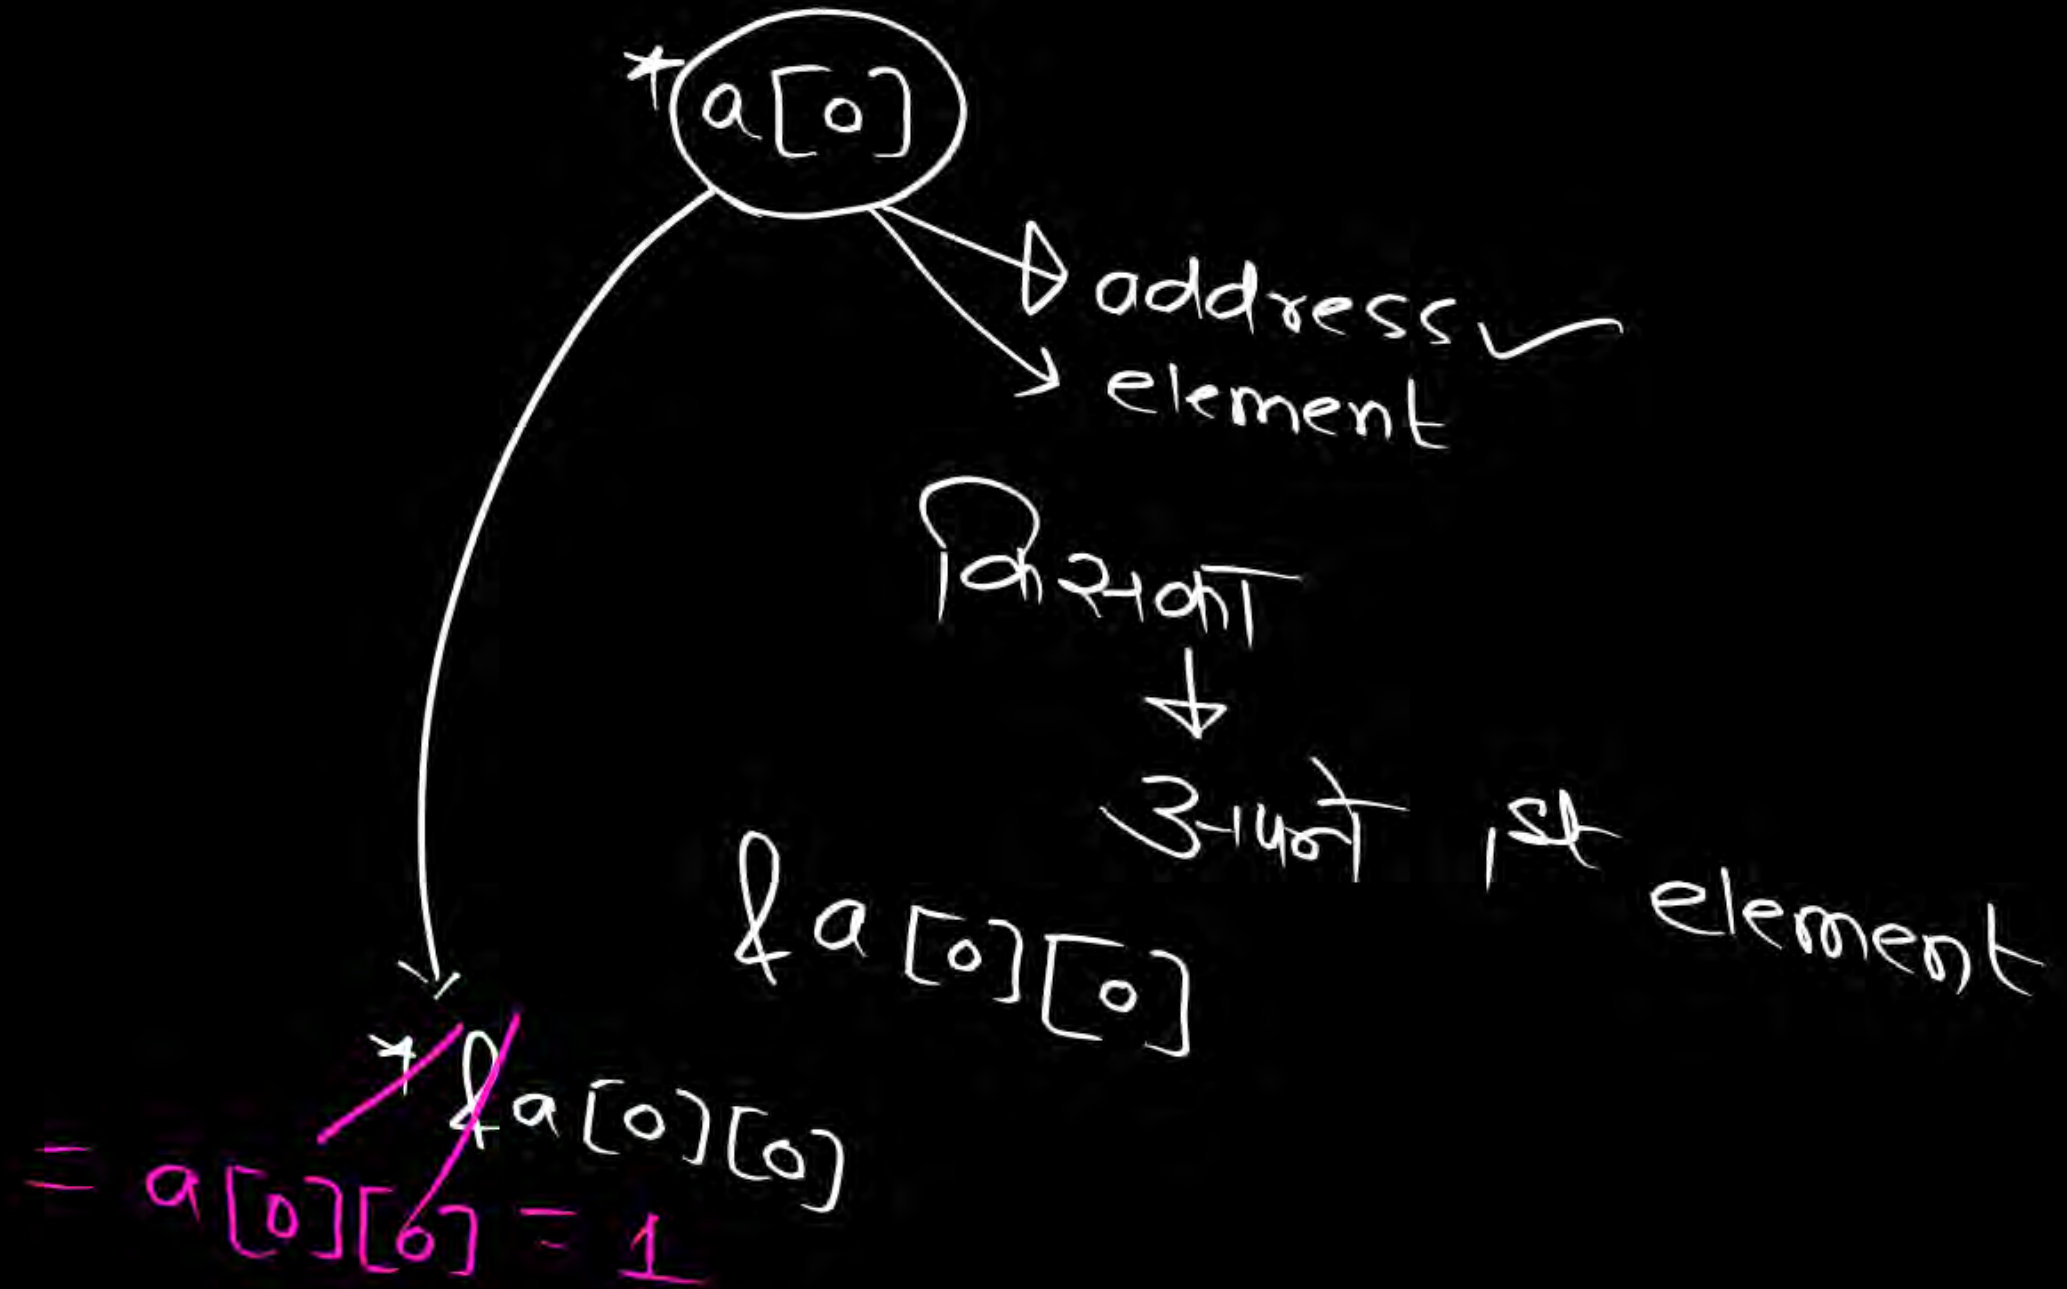 *a[0]
address ✓
element
किसका
अपने 1st element
&a[0][0]
*&a[0][0]
= a[0][0] = 1